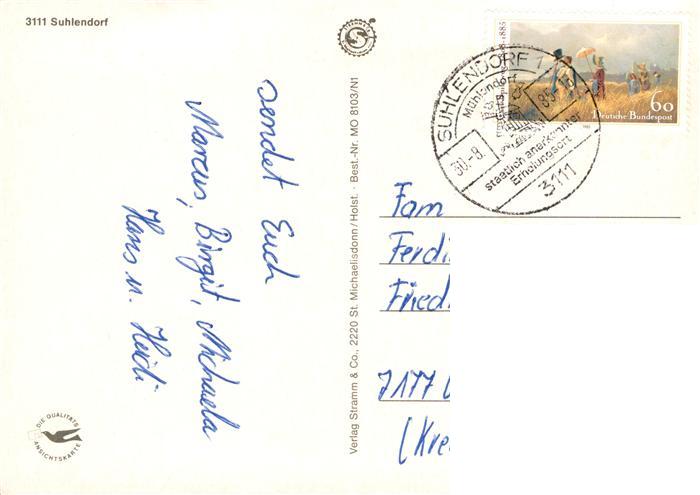 3111 Suhlendorf
sendet Euch
Marcus, Birgit, Michaela
Hans u. Heidi
DIE QUALITÄTS
ANSICHTSKARTE
Verlag Stramm & Co., 2220 St. Michaelisdonn/Holst. · Best.-Nr. MO 8103/N1
SUHLENDORF 1
Mühlendorf
30.-8.
85-16
staatlich anerkannter
Erholungsort
3111
60
Deutsche Bundespost
Fam
Ferdi
Fried
7177
(Kre